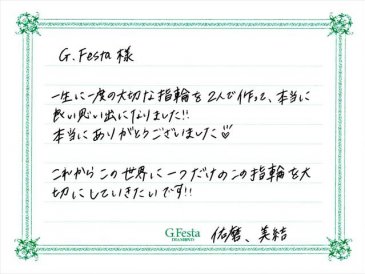 G.Festa様
一生に一度の大切な指輪を2人で作って、本当に
良い思い出になりました!!
本当にありがとうございました♡
これからこの世界に一つだけのこの指輪を大
切にしていきたいです!!
G.Festa
DIAMOND
佑磨、美結